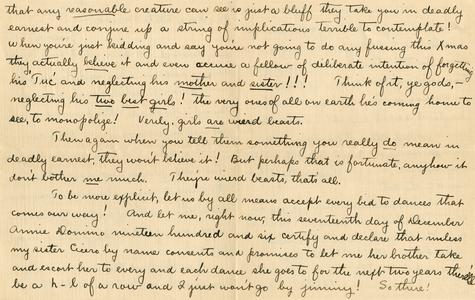 that any reasonable creature can see is just a bluff they take you in deadly
earnest and conjure up a string of implications terrible to contemplate!
When you're just kidding and say you're not going to do any fussing this Xmas
they actually believe it and even accuse a fellow of deliberate intention of forgetting
his and neglecting his mother and sister!!! Think of it, ye gods, —
neglecting his two best girls! the very ones of all on earth he's coming home to
see, to monopolize! Verily, girls are weird beasts.
Then again when you tell them something you really do mean in
deadly earnest, they won't believe it! But perhaps that is fortunate, anyhow it
don't bother me much. They're weird beasts, that's all.
To be more explicit, let us by all means accept every bid to dances that
comes our way! And let me, right now, this seventeenth day of December
Anno Domino nineteen hundred and six certify and declare that unless
my sister Cicero by name consents and promises to let me her brother take
and escort her to every and each dance she goes to for the next two years there'll
be a h-l of a row and I just won't go by jiminy! So there!